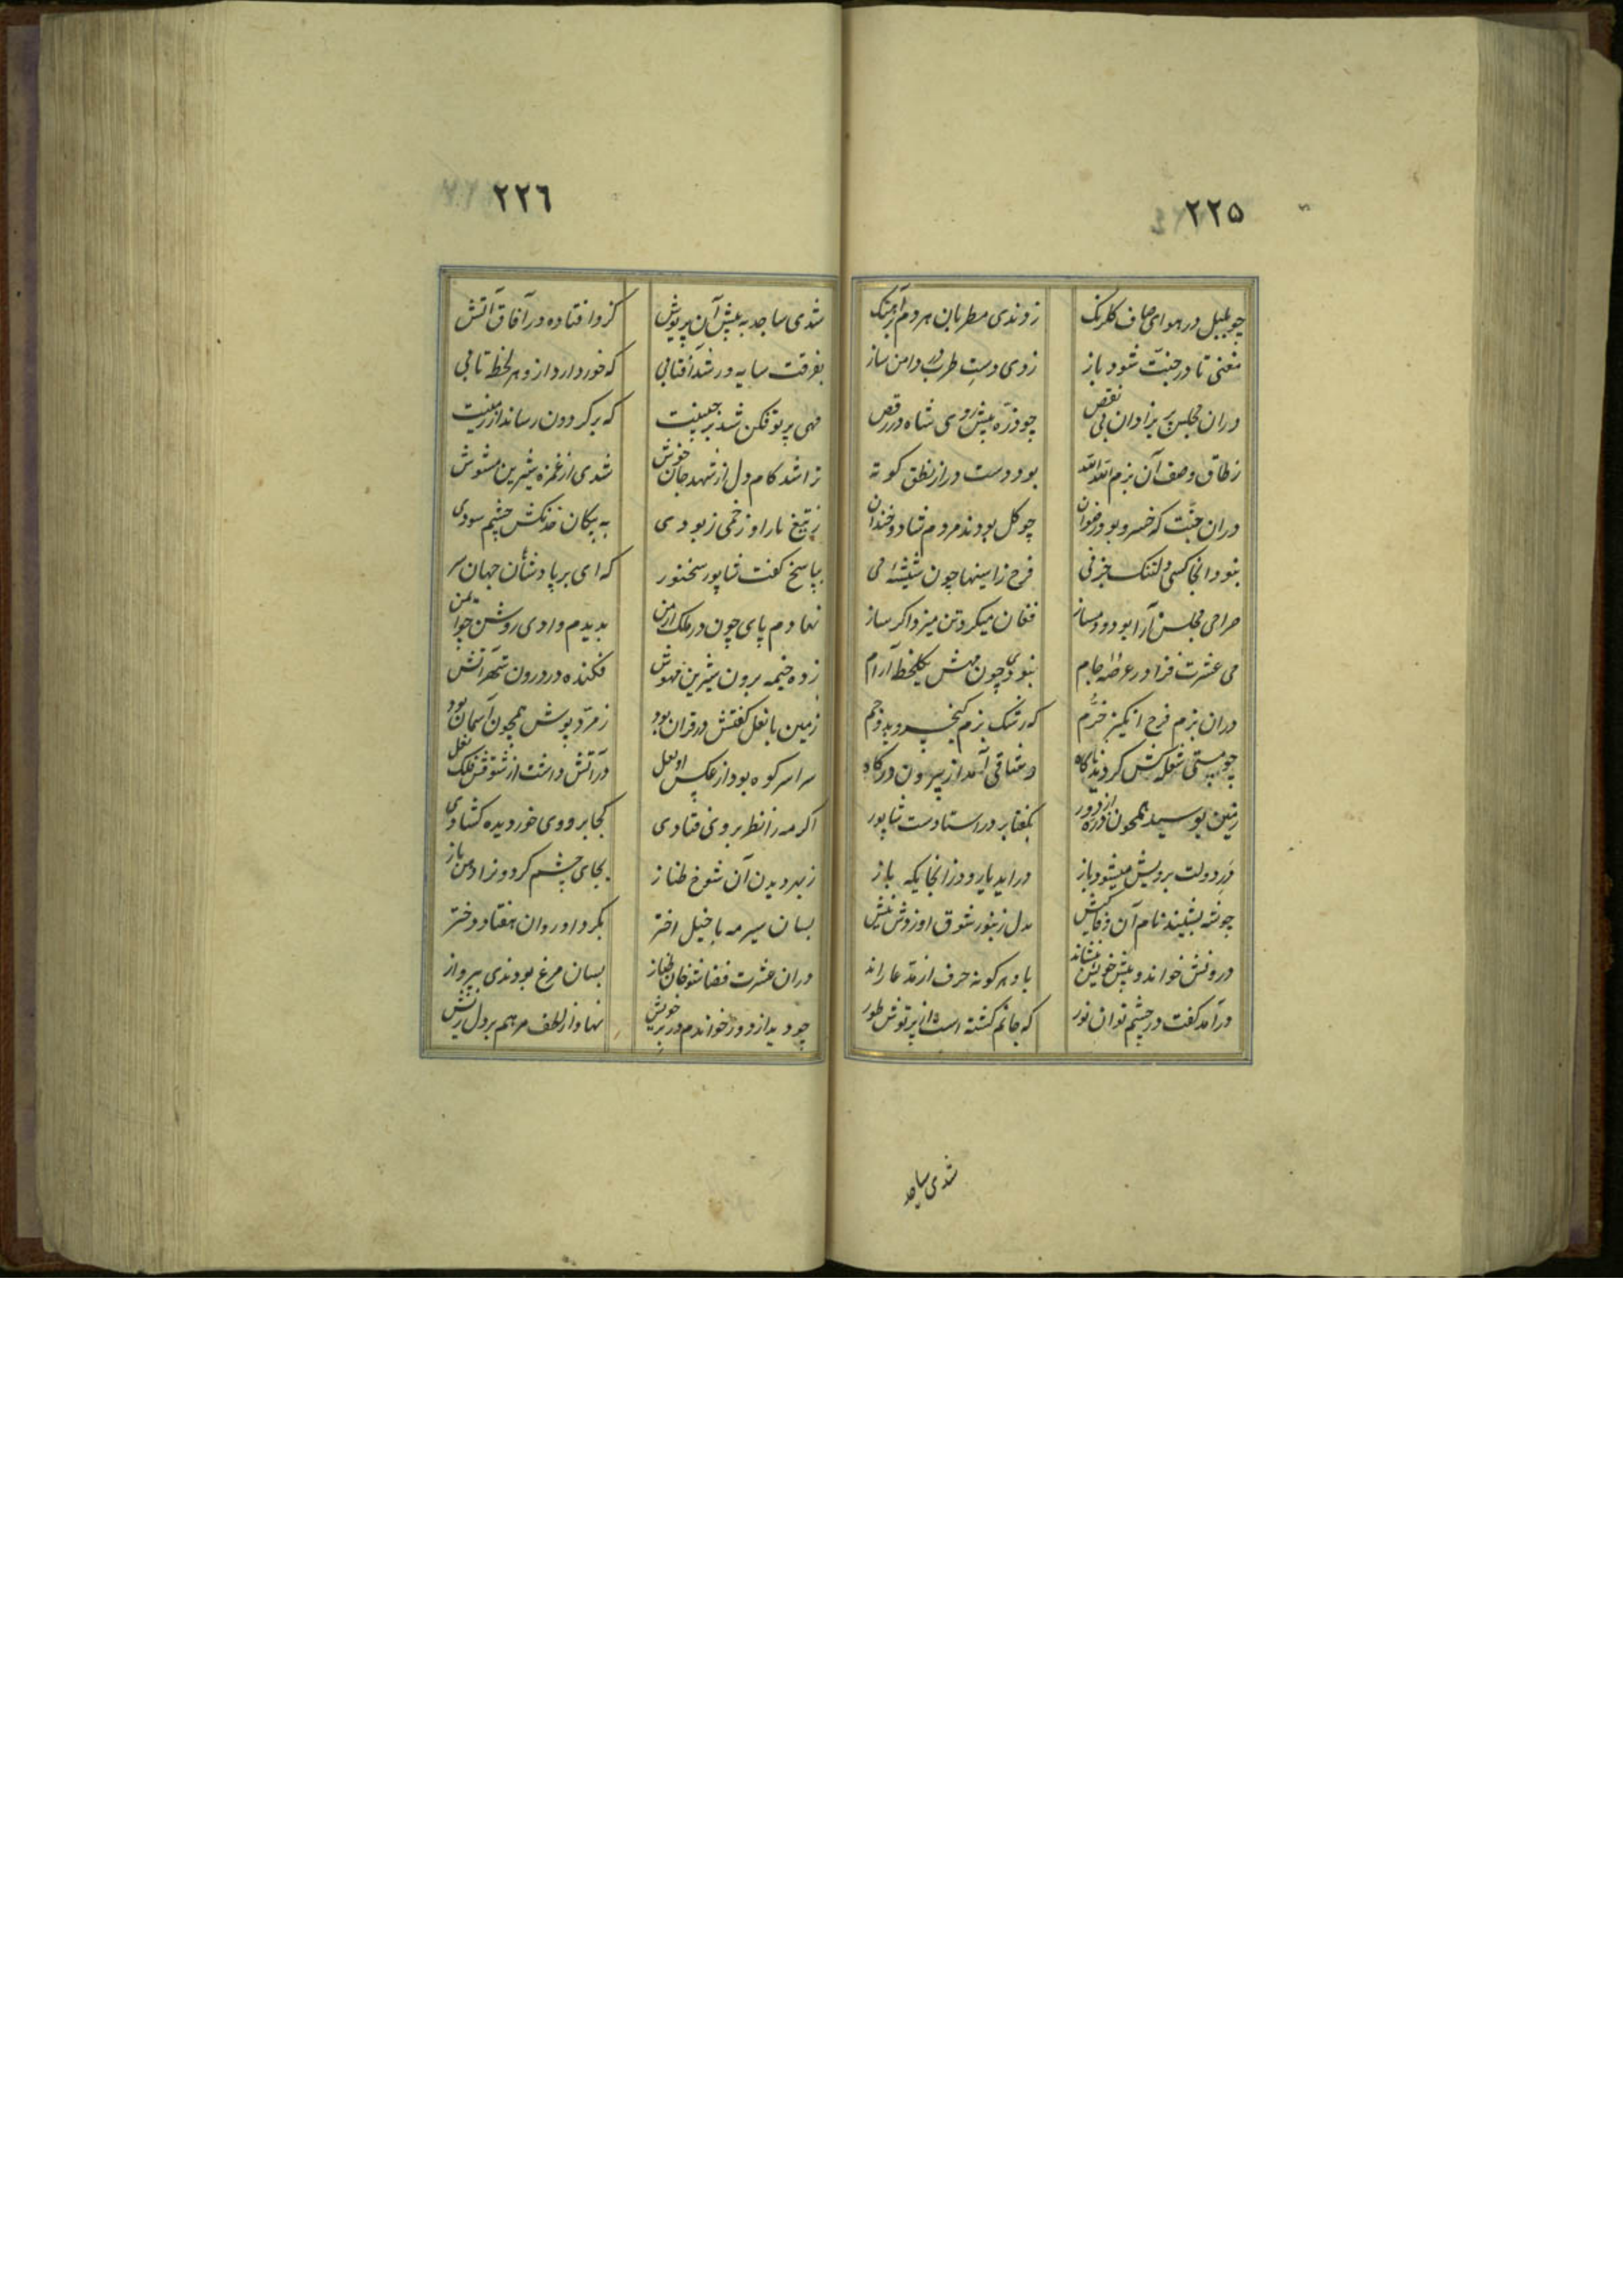 ٢٢٥
چو بلبل در هوای صاف کلرنک زدندی مطربان هر دم آهنک
مغنی تا در جنت شود باز زدی دست طرب در دامن ساز
دران مجلس پریزادان بی نقص چو ذره پیش روی شاه در رقص
زطاق وصف آن بزم بود دست دراز نطق کوته
دران جنت که خسرو بود رضوان چو کل بودند مردم شاد و خندان
نبود انجا کسی دلتنک جز نی فرح زا سینها چون شیشهٔ می
صراحی مجلس آرا بود و دمساز فغان میکرد تن میزد اکر ساز
می عشرت فزا در عرصهٔ جام نبودی چون مهش یکلحظه آرام
دران بزم فرح انکیز خرم که رشک بزم کیخسرو بد و جم
چو مستی شعله کش کردید ناکاه وشاقی آمد از بیرون درکاه
زمین بوسید همچون ذره از دور بکفتا بر در استادست شاپور
در دولت برویش میشود باز دراید یا رود زانجا یکه باز
چو شه بشنید نام آن وفاکیش بدل زنبور شوق او زدش نیش
درونش خواند و پیش خویش بنشاند باو هر کونه حرف از مدعا راند
درآمد کفت در چشم توان نور که جانم کشته است از پرتوش طور
شدی ساجد
٢٢٦
شدی ساجد به پیش آن پریوش کزو افتاده در آفاق آتش
بفرقت سایه ور شد آفتابی که خور دارد ازو هر لحظه تابی
مهی پرتو فکن شد بر جبینت که بر کردون رساند از زمینت
ترا شد کام دل از شهد جان خوش شدی از غمزه شیرین مشوش
ز تیغ ناز او زخمی ربودی به پیکان خدنکش چشم سودی
بپاسخ کفت شاپور سخنور که ای بر پادشاهان جهان سر
نهادم پای چون در ملک ارمن بدیدم وادی روشن چو ایمن
زده خیمه برون شیرین مهوش فکنده در درون شهر آتش
زمین با نعل کفشش در قران بود زمرد پوش همچون آسمان بود
سراسر کوه بود از عکس او لعل در آتش داشت از شوقش فلک نعل
اکر مه را نظر بر وی فتادی کجا بر روی خور دیده کشادی
زبهر دیدن آن شوخ طناز بجای چشم کرد و نرا دهن باز
بسان سیر مه با خیل اختر بکرد او روان هفتاد دختر
دران عشرت فضا شوخان طناز بسان مرغ بودندی بپرواز
چو دید از دور خواندم در بر خویش نهاد از لطف مرهم بر دل ریش